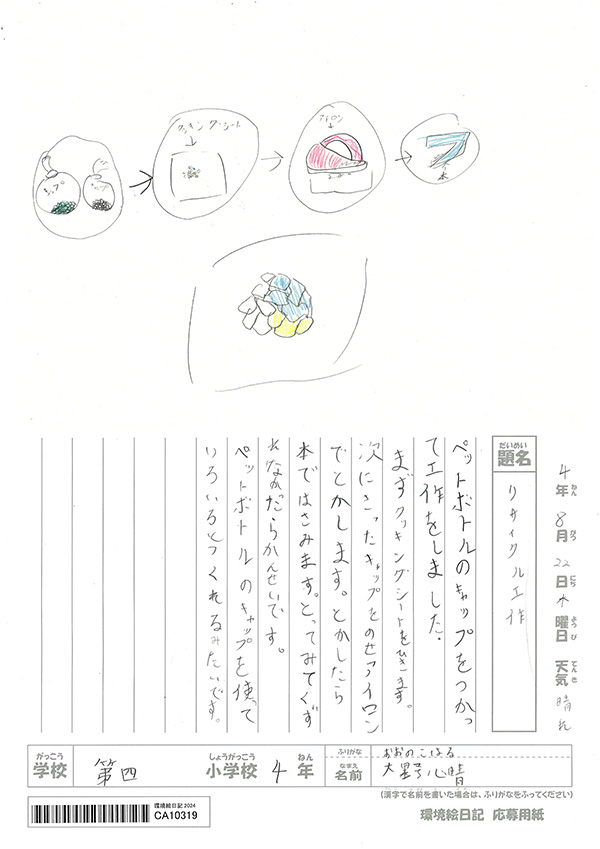 クッキングシート
アイロン
キャップ
キャップ
本
4年 8月 22日 木曜日 天気 晴れ
ねん がつ にち ようび てんき
だいめい
題名
リサイクル工作
ペットボトルのキャップをつかっ
て工作をしました。
まずクッキングシートをひきます。
次にきったキャップをのせアイロン
でとかします。とかしたら
本ではさみます。とってみてくず
れなかだらかんせいです。
ペットボトルのキャップを使って
いろいろとつくれるみたいです。
がっこう
学校
第四
しょうがっこう
小学校
4
ねん
年
ふりがな
おおのこはる
なまえ
名前
心晴
(漢字で名前を書いた場合は、ふりがなをふってください)
環境絵日記 2024
CA10319
環境絵日記 応募用紙